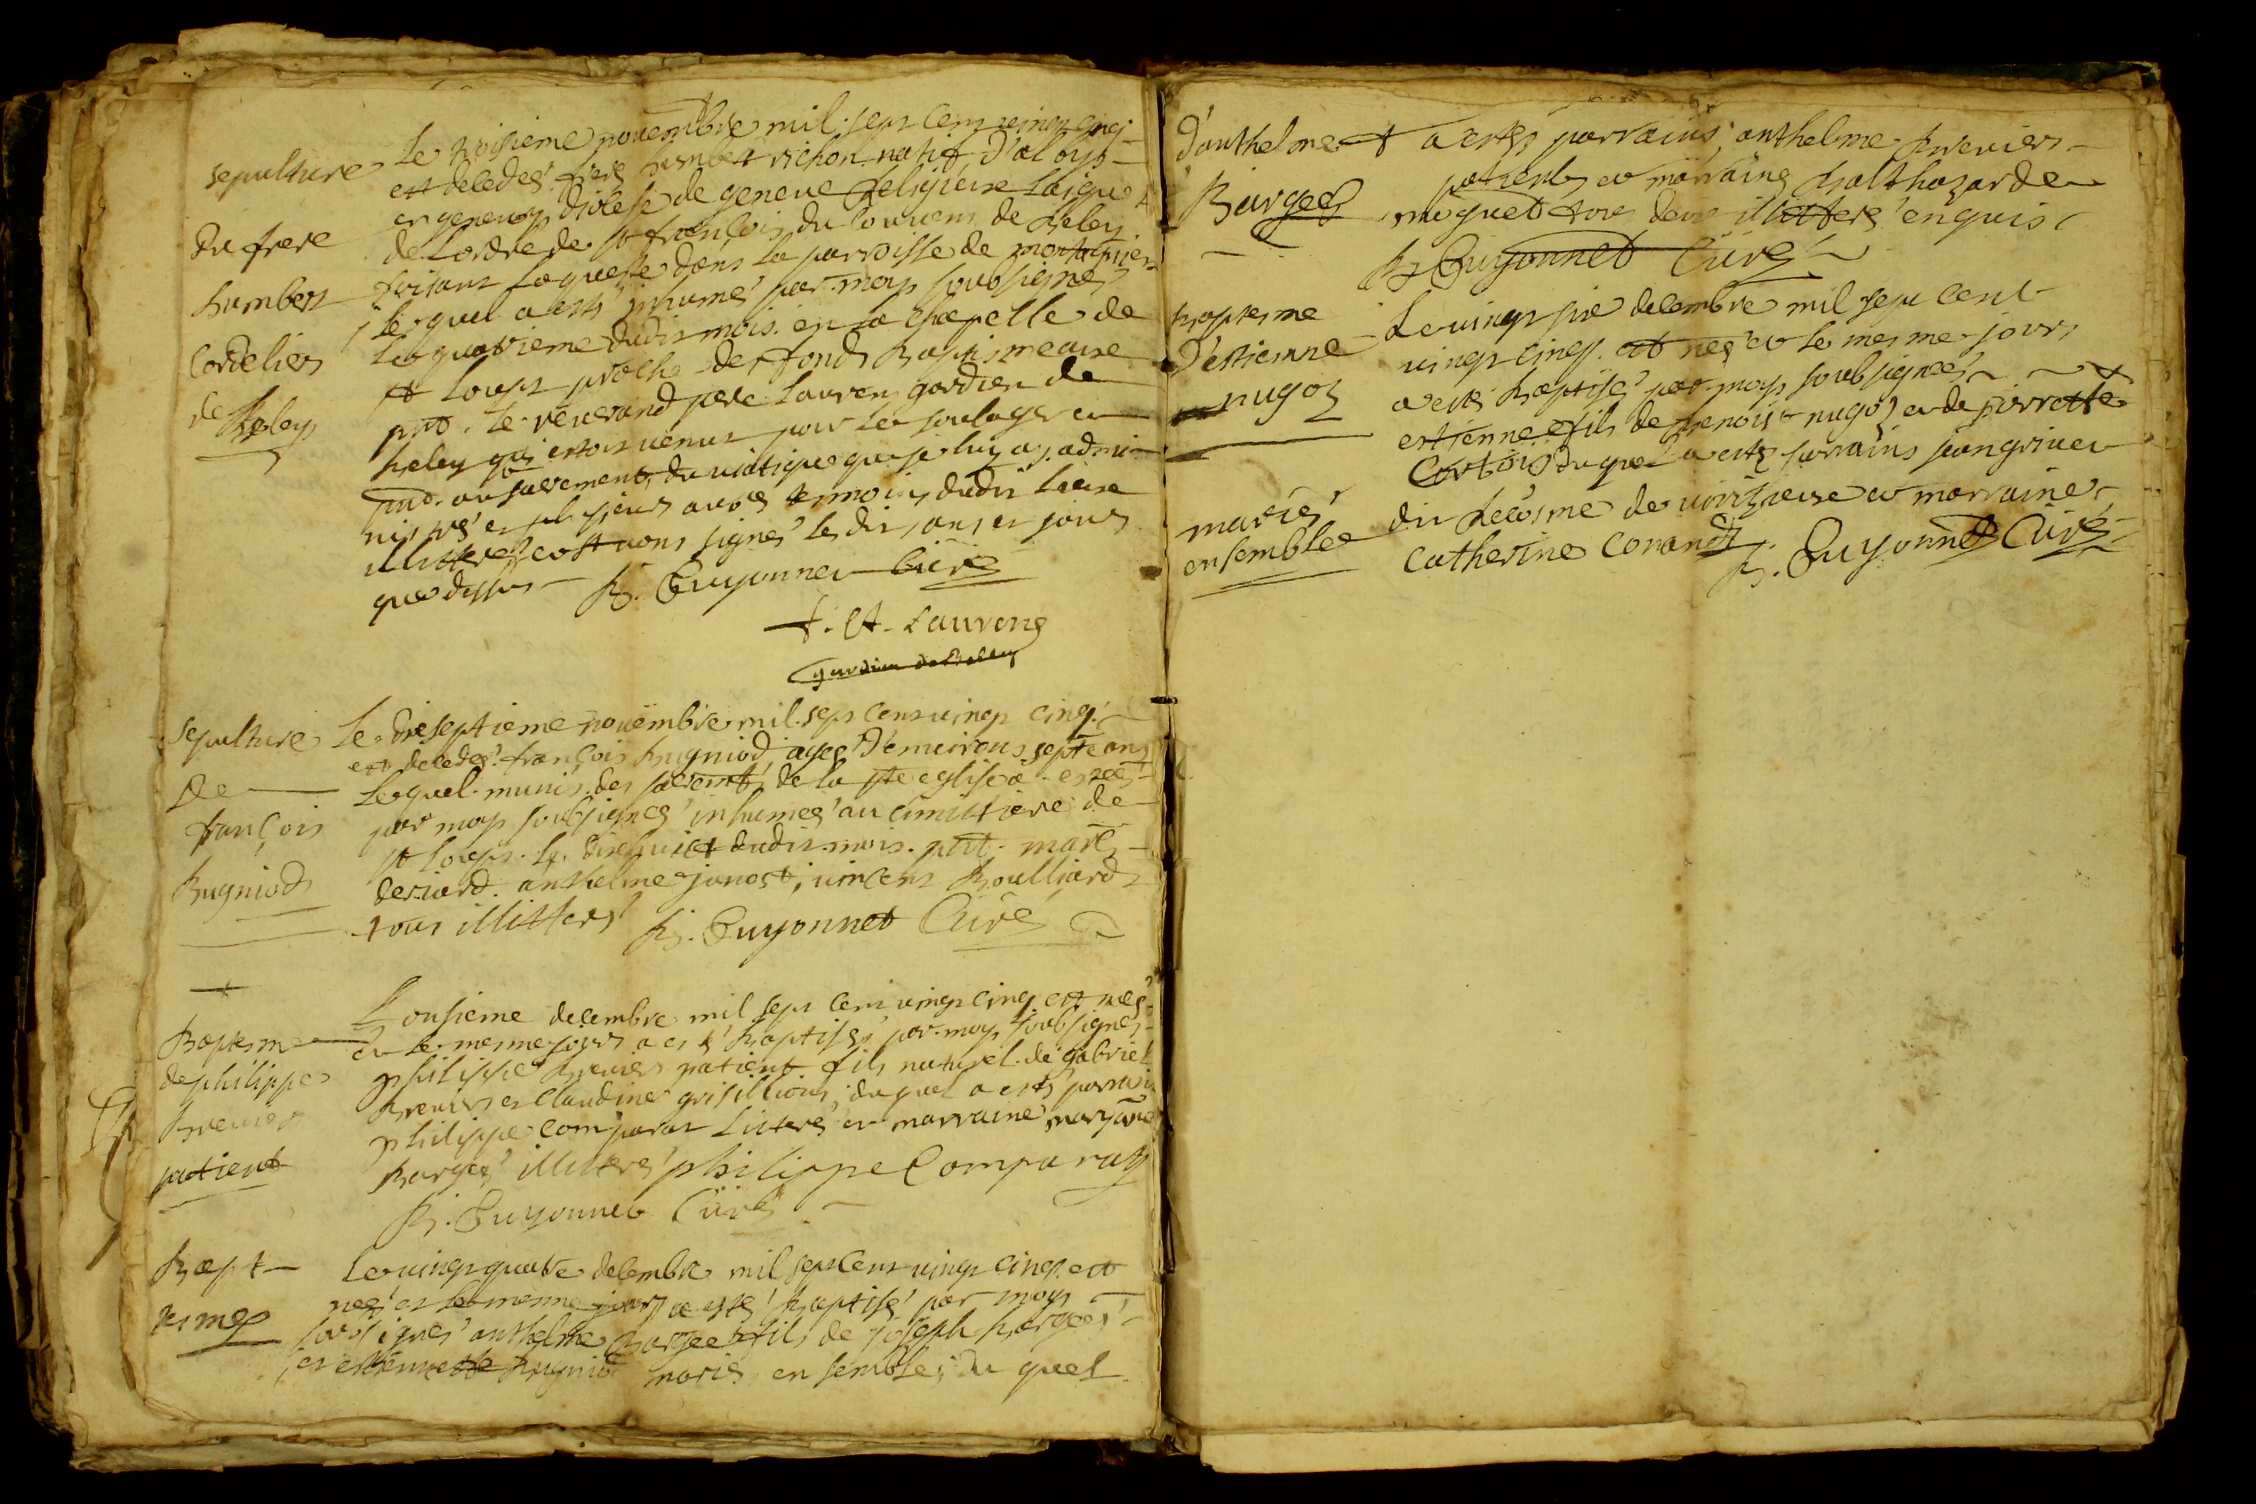 sepulture
du frere
humbert
Cordelier
de Beley
Le troisieme novembre mil sept cent vingt cinq
est decedes frere humbert richon natif d'aloys
en genevoys diocese de geneve Religieux laique
de Lordre de st françois du couvent de Beley
faisant la queste dans la parroisse de montagnieu
lequel a estés inhumés par moy soubsignés
le quatrieme dudit mois en la chapelle de
st Loup proche des fonds Baptismeaux
pnt. le reverand pere Laurens gardien de
beley qui estoit venut pour le soulager
au sacrement du viatique que je luy ay admi-
nistrés et plusieurs autres tesmoins dudit lieux
illitteres et avons signés les dit ans et jours
que dessus B. Guyonnet Curé
f. A. Laurens
gardien de Beley
sepulture
De
françois
Bugniod
Le dixseptieme novembre mil sept cent vingt cinq
est decedes françois Bugniod ages d'environs septe ans
lequel munis des sacremts de la ste eglise a estés
par moy soubsignes inhumes au cimittiere de
st Loup le dixhuict dudit mois pnt. marc
deriard anthelme janost, vincent Boulliard
tous illitteres B. Guyonnet Curé
Baptesme
de philippe
Brevier
patient
L'onsieme decembre mil sept cent vingt cinq est nés
et le mesme jours a estés Baptisés par moy soubsignés
philippe Brevier patient fils naturel de gabriel
Brevier et Claudine grisillion, duquel a estés parrain
philippe comparat litterés et marraine maryane
Barges illiteres philippe Comparat
B. Guyonnet Curé
Bapt
tesmes
Le vingt quatre decembre mil sept cent vingt cinq est
nés et le mesme jours a estés baptisé par moy
soubsignés anthelme Barges fils de joseph barges
et estiennette bugniod mariés ensembles du quel
d'anthelme
Barges
a estés parrains anthelme Brevier
patient et marraine balthazarde
muguet tous deux illitterés enquis
B Guyonnet Curé
baptesme
D'estienne
nugoz
mariés
ensembles
Le vingt six decembre mil sept cent
vingt cinq est nés et le mesme jours
a estés baptisés par moy soubsignés
estienne fils de benoist nugoz et de pierrette
Cortois duquel a estés parrains jean grivet
dit Lecosme de virizieux et marraine
Catherine Conand B. Guyonnet Curé